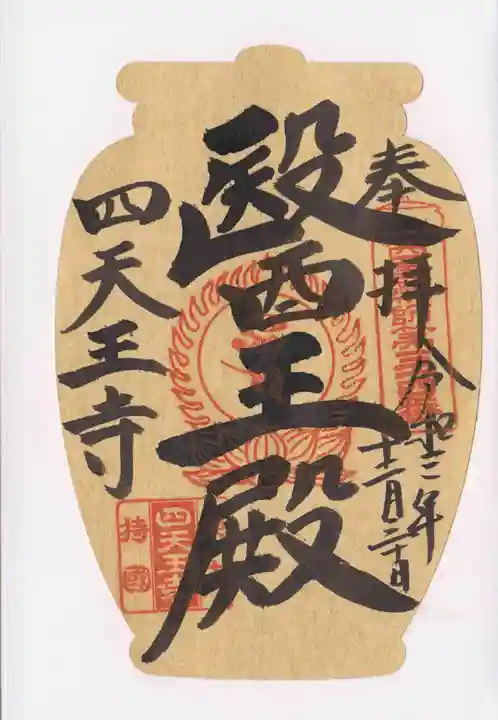 奉拝
令和二年
十二月二十日
醫王殿
四天王寺
持國
四天王寺